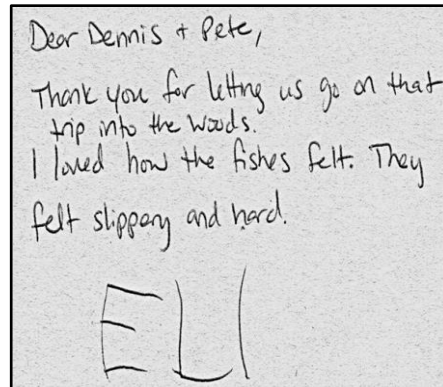 Dear Dennis + Pete,
Thank you for letting us go on that
trip into the woods.
I loved how the fishes felt. They
felt slippery and hard.
ELI